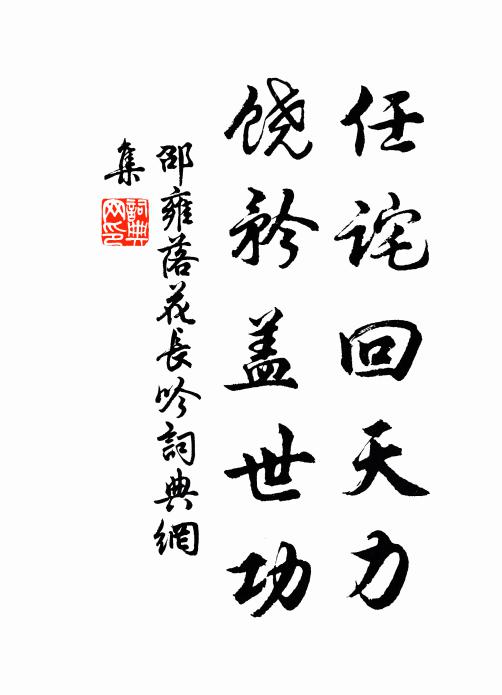 任詫回天力
饶矜蓋世功
邵雍落花長吟詞典網
集
詞典
网印